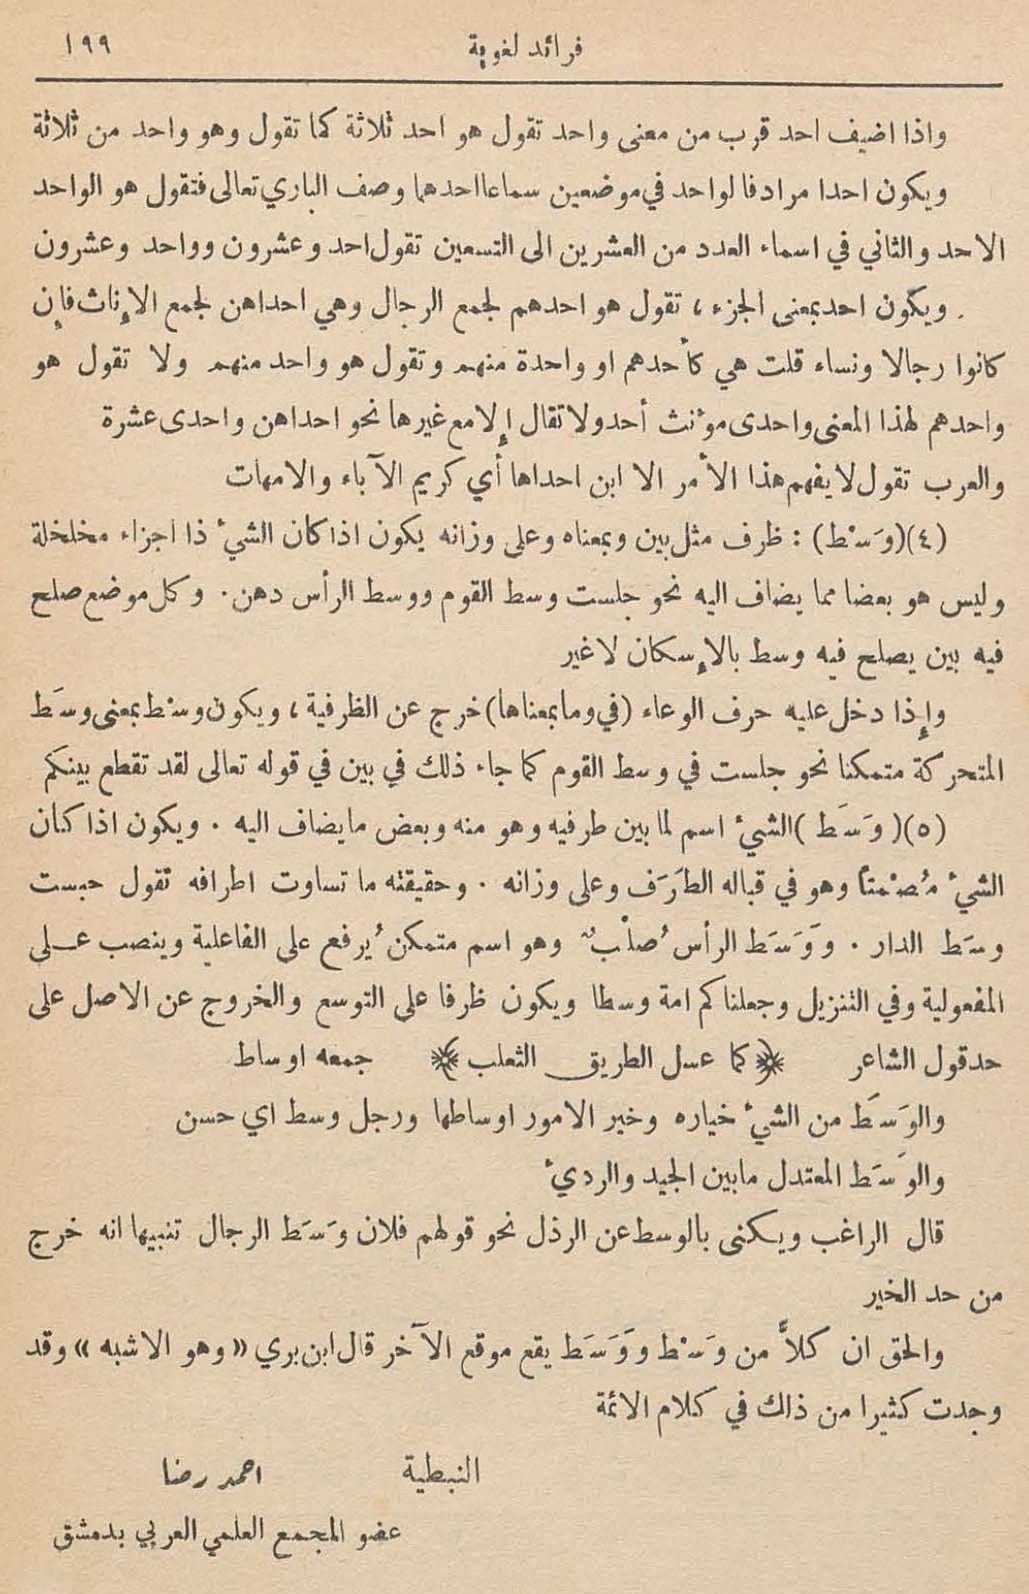 فرائد لغوية ١٩٩
واذا اضيف احد قرب من معنى واحد تقول هو احد ثلاثة كما تقول وهو واحد من ثلاثة
ويكون احدا مرادفا لواحد في موضعين سماعا احدهما وصف الباري تعالى فتقول هو الواحد
الاحد والثاني في اسماء العدد من العشرين الى التسعين تقول احد وعشرون وواحد وعشرون
ويكون احد بمعنى الجزء ، تقول هو احدهم لجمع الرجال وهي احداهن لجمع الإناث فإن
كانوا رجالا ونساء قلت هي كأحدهم او واحدة منهم وتقول هو واحد منهم ولا تقول هو
واحدهم لهذا المعنى واحدى مؤنث أحد ولا تقال إلا مع غيرها نحو احداهن واحدى عشرة
والعرب تقول لا يفهم هذا الأمر الا ابن احداها أي كريم الآباء والامهات
(٤)(وَسْط) : ظرف مثل بين وبمعناه وعلى وزانه يكون اذا كان الشيء ذا اجزاء مخلخلة
وليس هو بعضا مما يضاف اليه نحو جلست وسط القوم ووسط الرأس دهن . وكل موضع صلح
فيه بين يصلح فيه وسط بالإسكان لا غير
وإذا دخل عليه حرف الوعاء (في وما بمعناها) خرج عن الظرفية ، ويكون وسْط بمعنى وسَط
المتحركة متمكنا نحو جلست في وسط القوم كما جاء ذلك في بين في قوله تعالى لقد تقطع بينكم
(٥)(وَسَط) الشيء اسم لما بين طرفيه وهو منه وبعض ما يضاف اليه . ويكون اذا كان
الشيء مُصْمتاً وهو في قباله الطَرَف وعلى وزانه . وحقيقته ما تساوت اطرافه تقول حبست
وسَط الدار . ووَسَط الرأس صُلْبٌ وهو اسم متمكن يُرفع على الفاعلية وينصب عـلى
المفعولية وفي التنزيل وجعلناكم امة وسطا ويكون ظرفا على التوسع والخروج عن الاصل على
حد قول الشاعر ﴿كما عسل الطريق الثعلب﴾ جمعه اوساط
والوَسَط من الشيء خياره وخير الامور اوساطها ورجل وسط اي حسن
والوَسَط المعتدل ما بين الجيد والرديء
قال الراغب ويكنى بالوسط عن الرذل نحو قولهم فلان وَسَط الرجال تنبيها انه خرج
من حد الخير
والحق ان كلاًّ من وَسْط ووَسَط يقع موقع الآخر قال ابن بري «وهو الاشبه» وقد
وجدت كثيرا من ذلك في كلام الائمة
النبطية احمد رضا
عضو المجمع العلمي العربي بدمشق